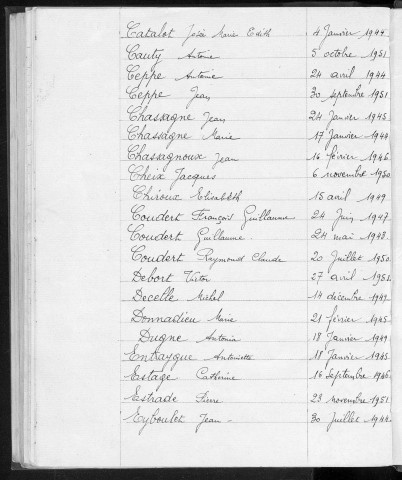 Catalot José Marie Edith 4 Janvier 1944
Cauty Antoine 5 octobre 1951
Ceppe Antoine 24 avril 1944
Ceppe Jean 30 septembre 1951
Chassagne Jean 24 Janvier 1945
Chassagne Marie 17 Janvier 1944
Chassagnoux Jean 16 février 1946
Cheix Jacques 6 novembre 1950
Chiroux Elisabeth 15 avril 1949
Coudert François Guillaume 24 Juin 1947
Coudert Guillaume 24 mai 1948
Coudert Raymond Claude 20 Juillet 1950
Debort Victor 27 avril 1951
Decelle Michel 14 décembre 1949
Donnadieu Marie 21 février 1945
Dugne Antonia 18 Janvier 1949
Entraygue Antoinette 18 Janvier 1945
Estage Catherine 16 Septembre 1946
Estrade Pierre 23 novembre 1951
Eyboulet Jean 30 Juillet 1944